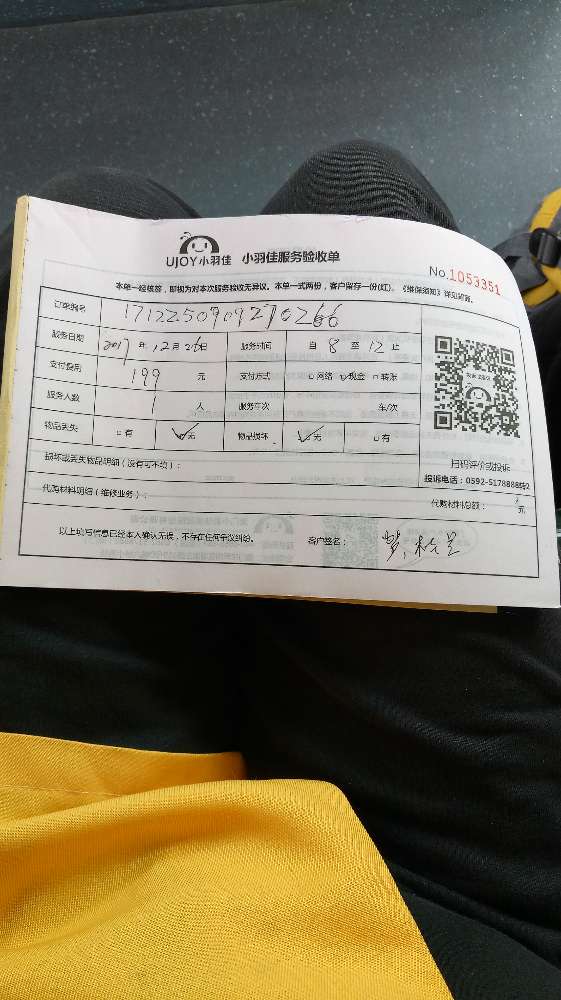 UJOY小羽佳 小羽佳服务验收单
No.1053351
本单一经核签，即视为对本次服务验收无异议。本单一式两份，客户留存一份(红)。《维保须知》详见背面。
订单编号 171225090927 0266
服务日期 2017年12月26日 服务时间 自 8 至 12 止
支付费用 199 元 支付方式 □网络 ☑现金 □转账
服务人数 1 人 服务车次 车/次
物品丢失 □有 ☑无 物品损坏 ☑无 □有
扫码评价或投诉
损坏或丢失物品明细（没有可不填）：
投诉电话：0592-5178888转2
代购材料明细（维修业务）：
代购材料总额： 元
以上填写信息已经本人确认无误，不存在任何争议纠纷。 客户签名：